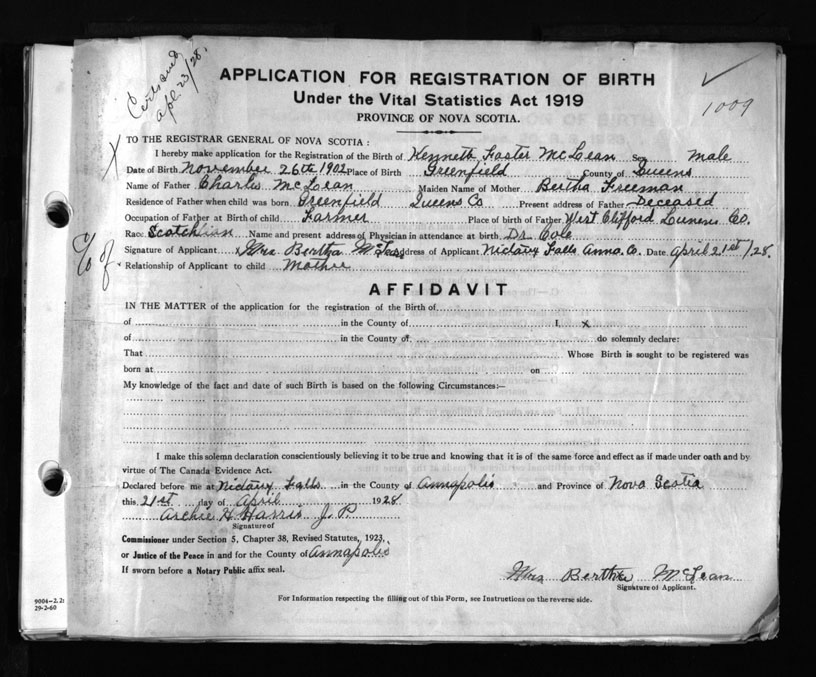 Cert issued
Apl. 23/28.
1009
APPLICATION FOR REGISTRATION OF BIRTH
Under the Vital Statistics Act 1919
PROVINCE OF NOVA SCOTIA.
X
TO THE REGISTRAR GENERAL OF NOVA SCOTIA :
I hereby make application for the Registration of the Birth of Kenneth Foster McLean Sex male
Date of Birth November 26th 1902 Place of Birth Greenfield County of Queens
Name of Father Charles McLean Maiden Name of Mother Bertha Freeman
Residence of Father when child was born Greenfield Queens Co Present address of Father Deceased
Occupation of Father at Birth of child Farmer Place of birth of Father West Clifford Lunens Co.
Race Scotchlian Name and present address of Physician in attendance at birth Dr. Cole
Signature of Applicant x Mrs Bertha McLean Address of Applicant Nictaux Falls Anna. Co. Date April 21st/28.
Relationship of Applicant to child Mother
c/o of.
AFFIDAVIT
IN THE MATTER of the application for the registration of the Birth of
of in the County of I, x
of in the County of do solemnly declare:
That Whose Birth is sought to be registered was
born at on
My knowledge of the fact and date of such Birth is based on the following Circumstances:—
I make this solemn declaration conscientiously believing it to be true and knowing that it is of the same force and effect as if made under oath and by
virtue of The Canada Evidence Act.
Declared before me at Nictaux Falls in the County of Annapolis and Province of Nova Scotia
this 21st day of April 1928
Archie H Harris J. P.
Signature of
Commissioner under Section 5, Chapter 38, Revised Statutes, 1923,
or Justice of the Peace in and for the County of Annapolis
If sworn before a Notary Public affix seal.
Mrs Bertha McLean
Signature of Applicant.
For Information respecting the filling out of this Form, see Instructions on the reverse side.
29-2-60